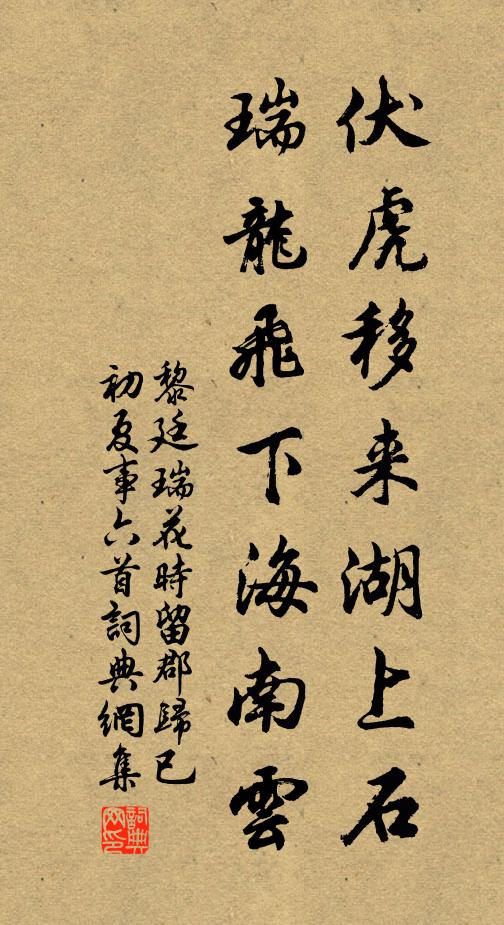 伏虎移来湖上石
瑞龍飛下海南雲
黎廷瑞花時留郡歸已
初夏事六首詞典網集
詞典网印